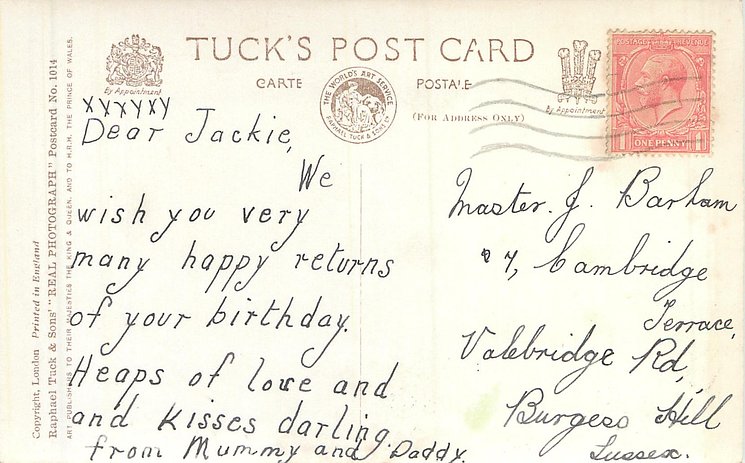 TUCK'S POST CARD
CARTE POSTALE
By Appointment
THE WORLD'S ART SERVICE
RAPHAEL TUCK & SONS LTD
(FOR ADDRESS ONLY)
By Appointment
POSTAGE REVENUE
ONE PENNY
1 1
Copyright, London Printed in England
Raphael Tuck & Sons' "REAL PHOTOGRAPH" Postcard No. 1014
ART PUBLISHERS TO THEIR MAJESTIES THE KING & QUEEN, AND TO H.R.H. THE PRINCE OF WALES.
XXXXXX
Dear Jackie,
We
wish you very
many happy returns
of your birthday.
Heaps of love and
and kisses darling
from Mummy and Daddy.
Master. J. Barham
7, Cambridge
Terrace,
Valebridge Rd,
Burgess Hill
Sussex.